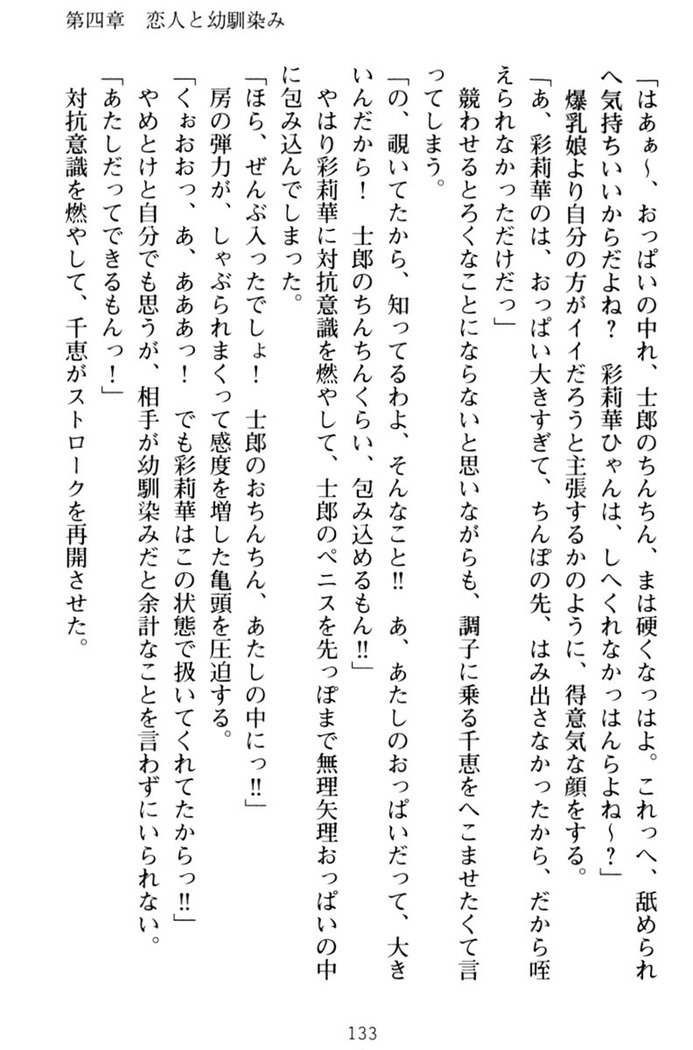 第四章　恋人と幼馴染み
「はあぁ～、おっぱいの中れ、士郎のちんちん、まは硬くなっはよ。これっへ、舐められ
へ気持ちいいからだよね？　彩莉華ひゃんは、しへくれなかっはんらよね～？」
爆乳娘より自分の方がイイだろうと主張するかのように、得意気な顔をする。
「あ、彩莉華のは、おっぱい大きすぎて、ちんぽの先、はみ出さなかったから、だから咥
えられなかっただけだっ」
競わせるとろくなことにならないと思いながらも、調子に乗る千恵をへこませたくて言
ってしまう。
「の、覗いてたから、知ってるわよ、そんなこと!!　あ、あたしのおっぱいだって、大き
いんだから！　士郎のちんちんくらい、包み込めるもん!!」
やはり彩莉華に対抗意識を燃やして、士郎のペニスを先っぽまで無理矢理おっぱいの中
に包み込んでしまった。
「ほら、ぜんぶ入ったでしょ！　士郎のおちんちん、あたしの中にっ!!」
房の弾力が、しゃぶられまくって感度を増した亀頭を圧迫する。
「くぉおおっ、あ、あああっ！　でも彩莉華はこの状態で扱いてくれてたからっ!!」
やめとけと自分でも思うが、相手が幼馴染みだと余計なことを言わずにいられない。
「あたしだってできるもんっ！」
対抗意識を燃やして、千恵がストロークを再開させた。
133